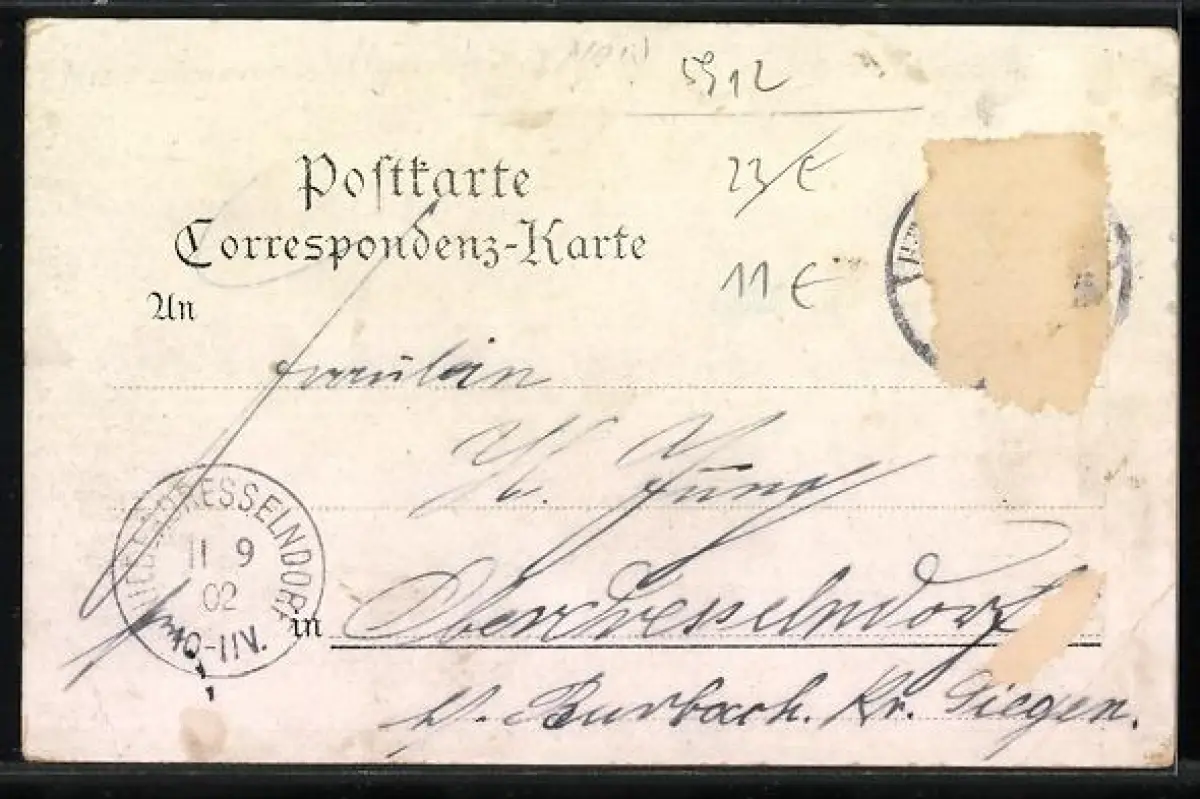 5912
Postkarte
Correspondenz-Karte
23/€
11 €
An
Fräulein
H. Jung
NIEDERDRESSELNDORF
11 9
02
10-11V.
in
Oberdresselndorf
b. Burbach. Kr. Siegen.